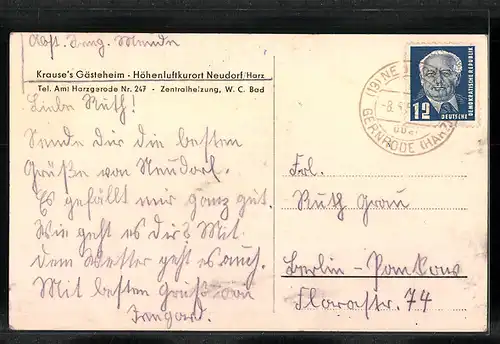 Abst. Irmg. Mende
Krause's Gästeheim - Höhenluftkurort Neudorf/Harz
Tel. Amt Harzgerode Nr. 247 - Zentralheizung, W. C. Bad
Liebe Ruth!
Sende dir die besten
Grüße von Neudorf.
Es gefällt mir ganz gut.
Wie geht es dir? Mit
dem Wetter geht es auch.
Mit besten Gruß von
Irmgard.
(19) NE
-8.
GERNRODE (HARZ)
12
DEUTSCHE
DEMOKRATISCHE REPUBLIK
Frl.
Ruth Grau
Berlin-Pankow
Florastr. 74